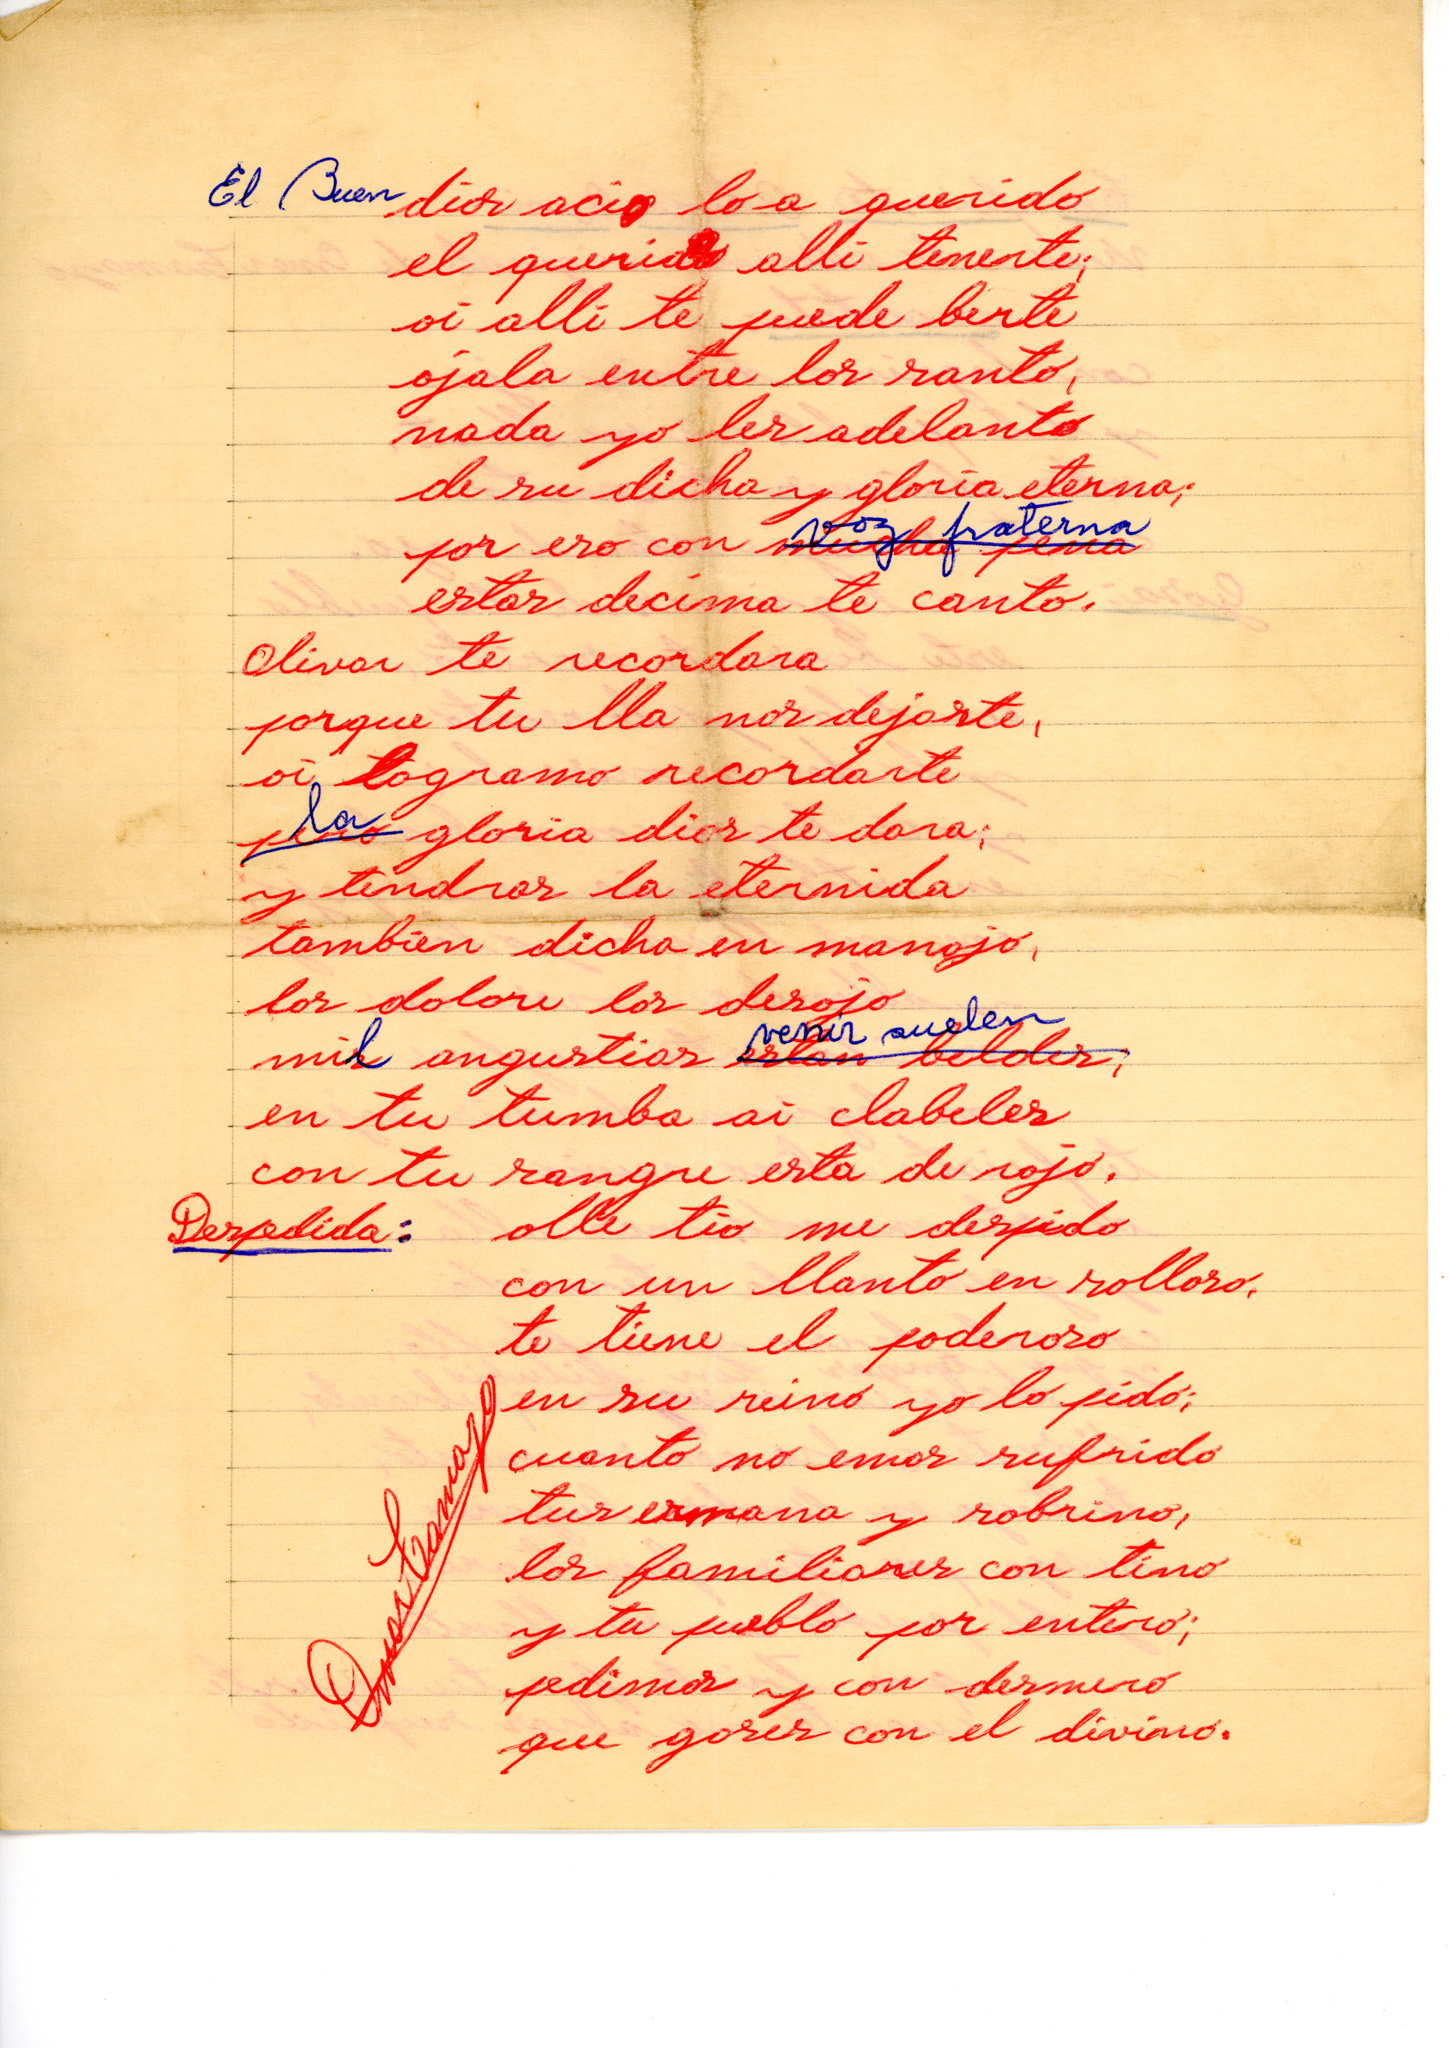 El Buen dios acio lo a querido
el querido alli tenerte;
oi alli te puede berte
ojala entre los santo,
nada yo les adelanto
de su dicha y gloria eterna;
por eso con mucha pena voz fraterna
estas decima te canto.
Olivar te recordara
porque tu lla nos dejaste,
oi logramo recordarte
pero la gloria dios te dara;
y tendras la eternida
tambien dicha en manojo,
los dolore los desojo
mil angustias estan beldes; venir suelen
en tu tumba ai clabeles
con tu sangre esta de rojo.
Despedida: olle tio me despido
con un llanto en solloso,
te tiene el poderoso
en su reino yo lo pido;
cuanto no emos sufrido
tus ermana y sobrino,
los familiares con tino
y tu pueblo por entero;
pedimos y con desmero
que goses con el divino.